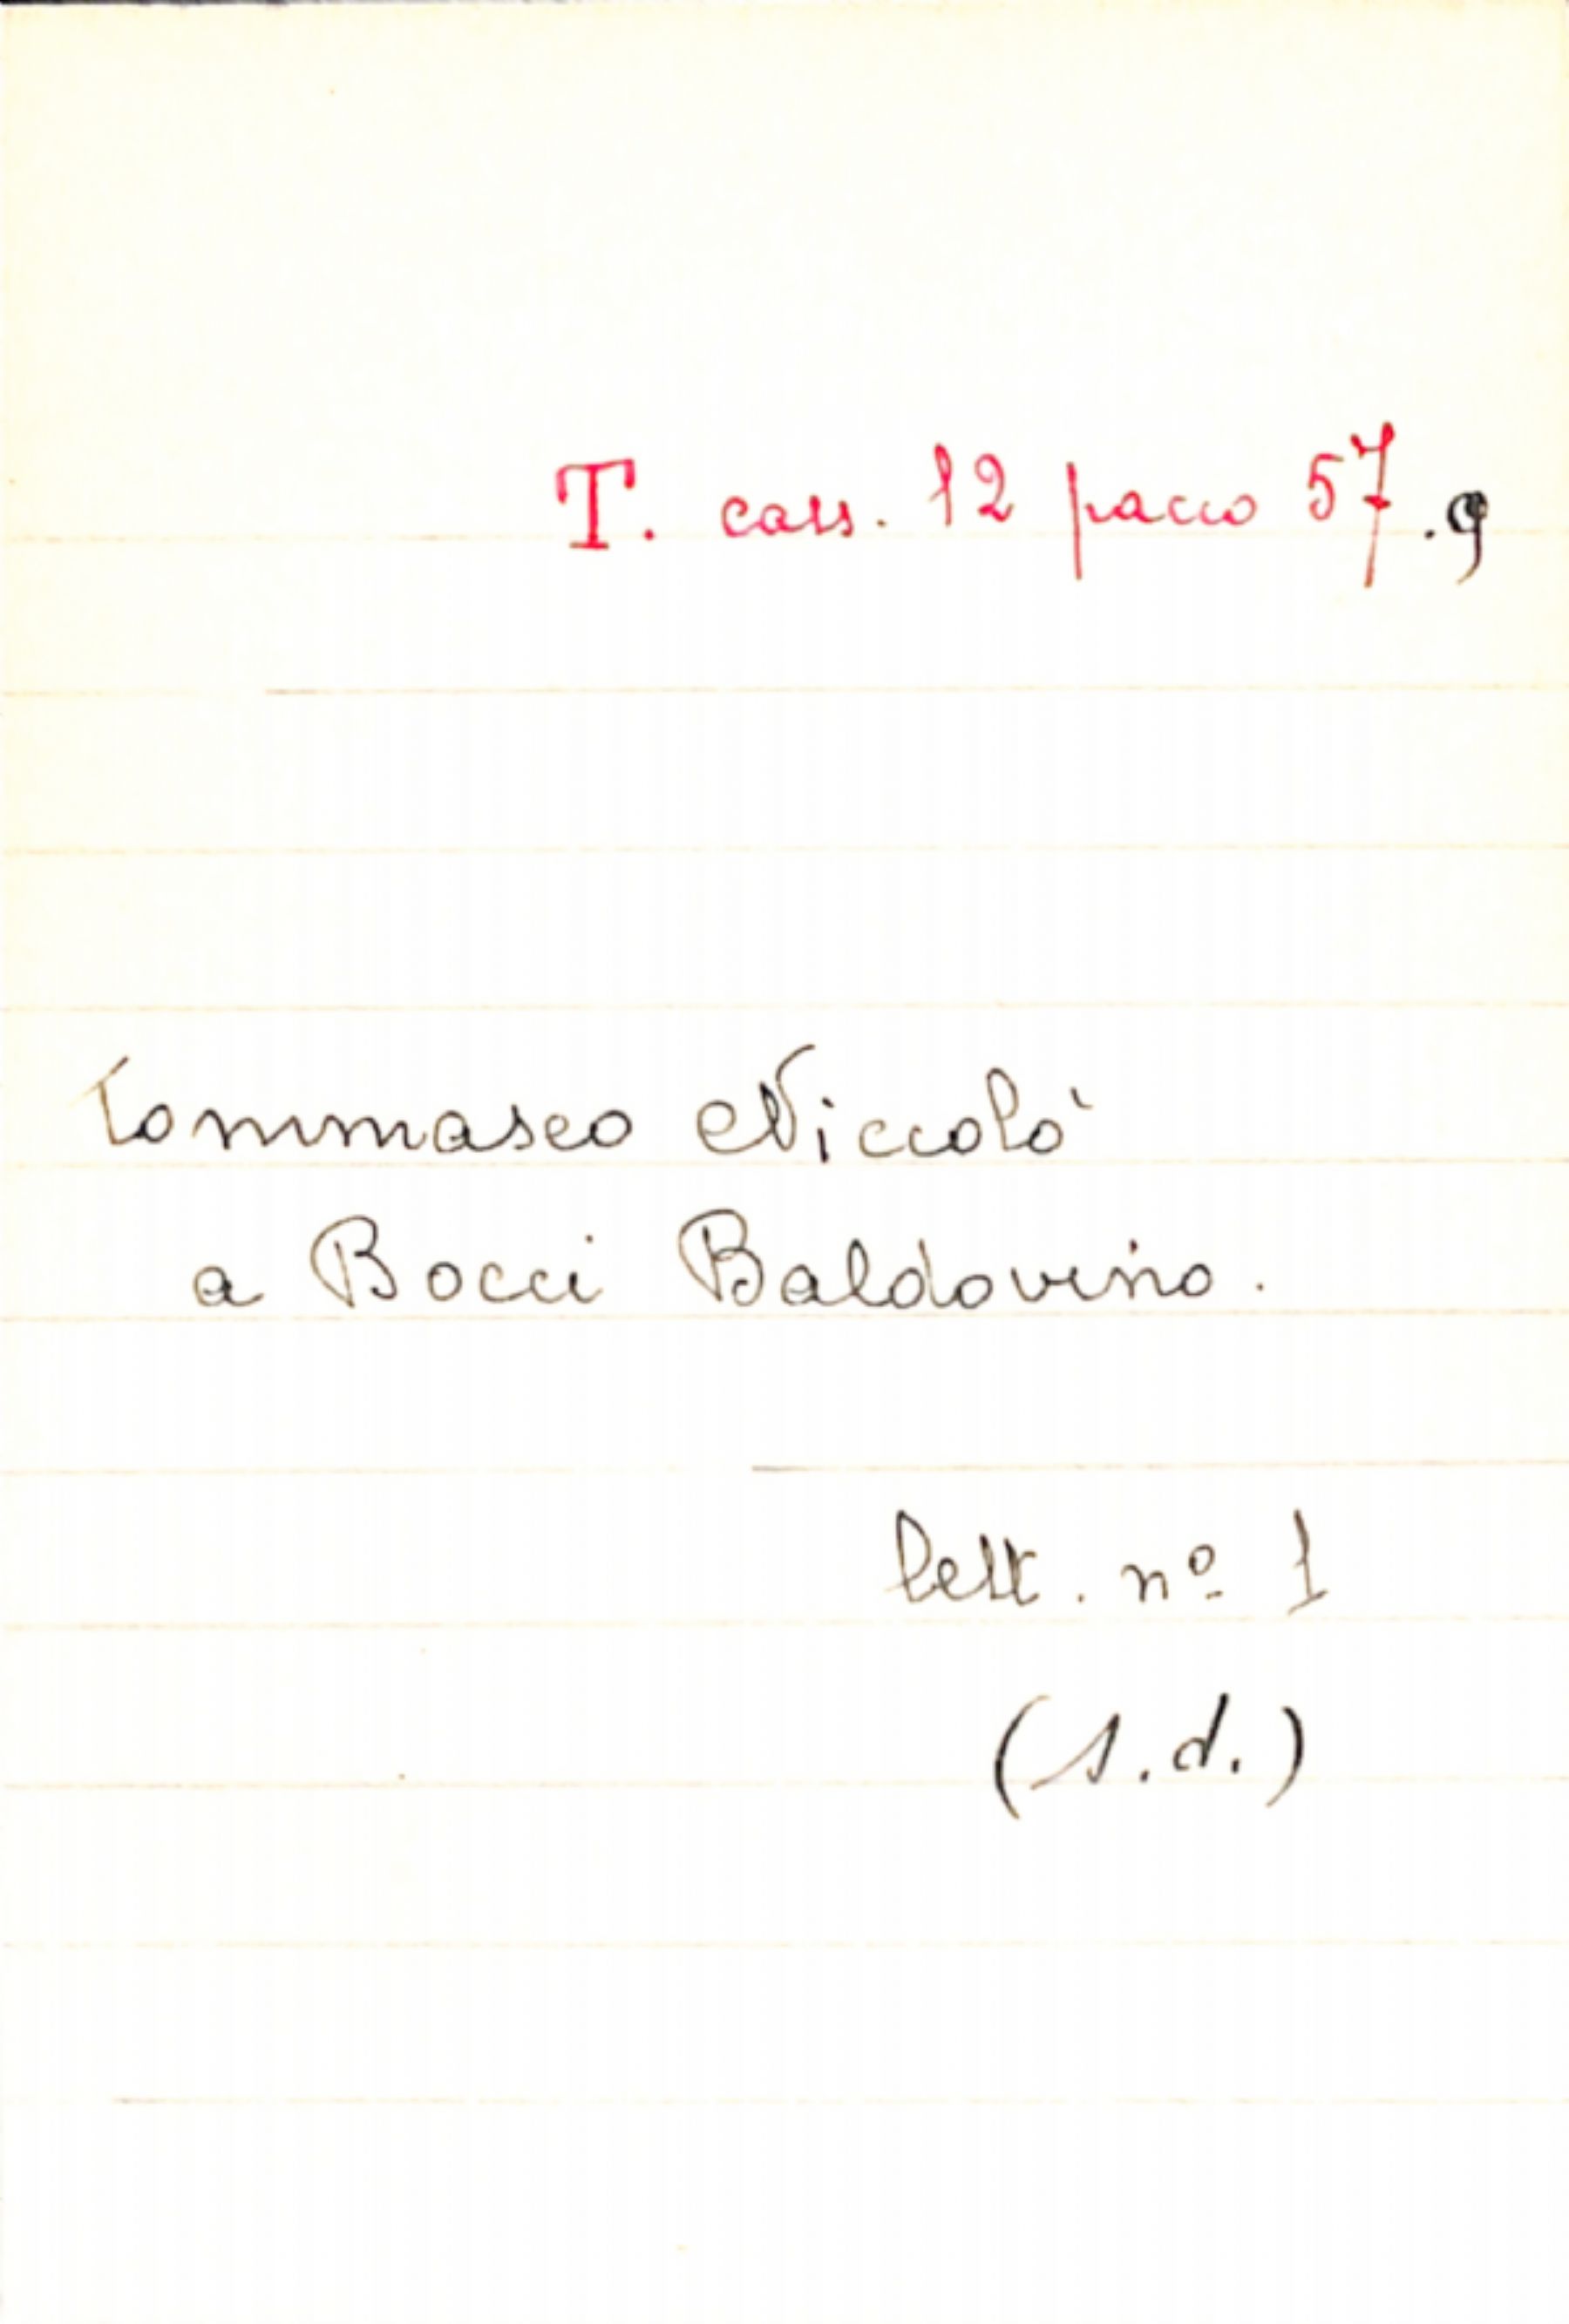 T. cass. 12 pacco 57.9
Tommaseo Niccolò
a Bocci Baldovino.
lett. nº 1
(s.d.)